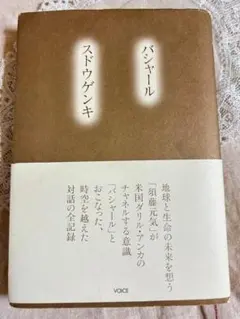 バシャール
スドウゲンキ
地球と生命の未来を想う
「須藤元気」が
米国ダリル・アンカの
チャネルする意識
「バシャール」と
おこなった、
時空を越えた
対話の全記録
VOICE